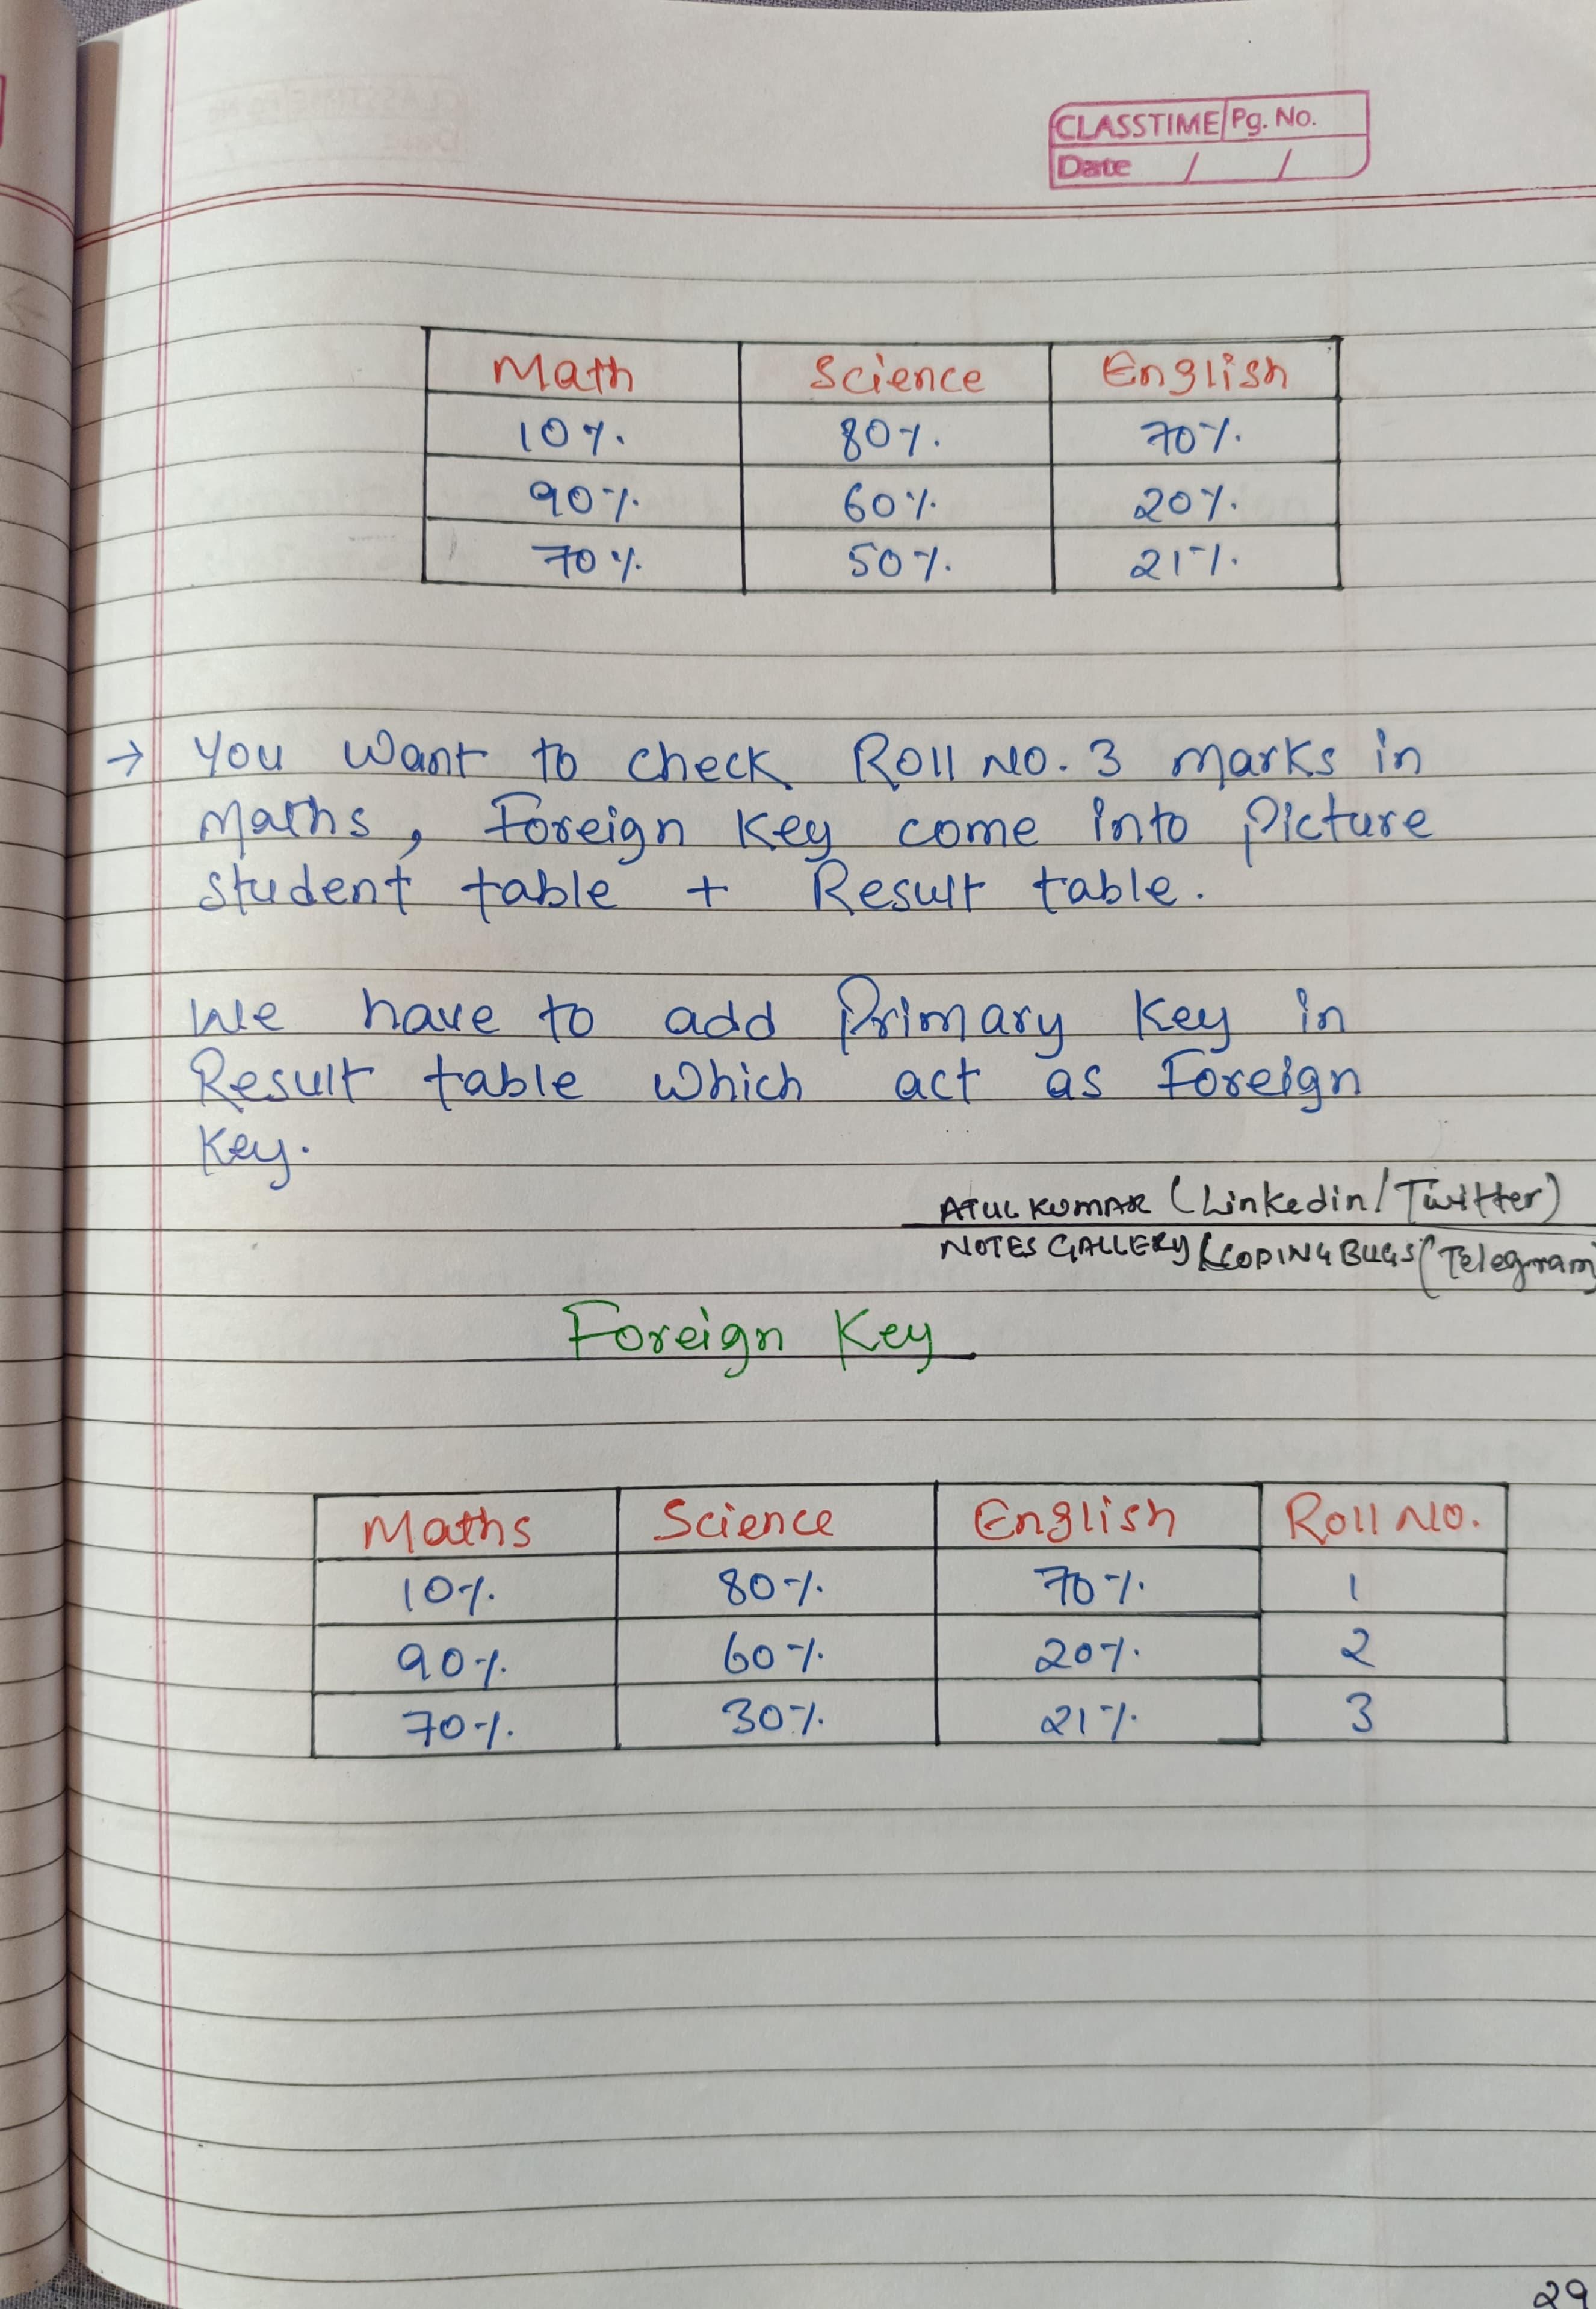 CLASSTIME Pg. No.
Date / /
Math Science English
10% 80% 70%
90% 60% 20%
70% 50% 21%
→ You want to check Roll No. 3 marks in
Maths, Foreign Key come into Picture
student table + Result table.
We have to add Primary Key in
Result table which act as Foreign
Key.
ATUL KUMAR (Linkedin/Twitter)
NOTES GALLERY CODING BUGS (Telegram)
Foreign Key
Maths Science English Roll No.
10% 80% 70% 1
90% 60% 20% 2
70% 30% 21% 3
29